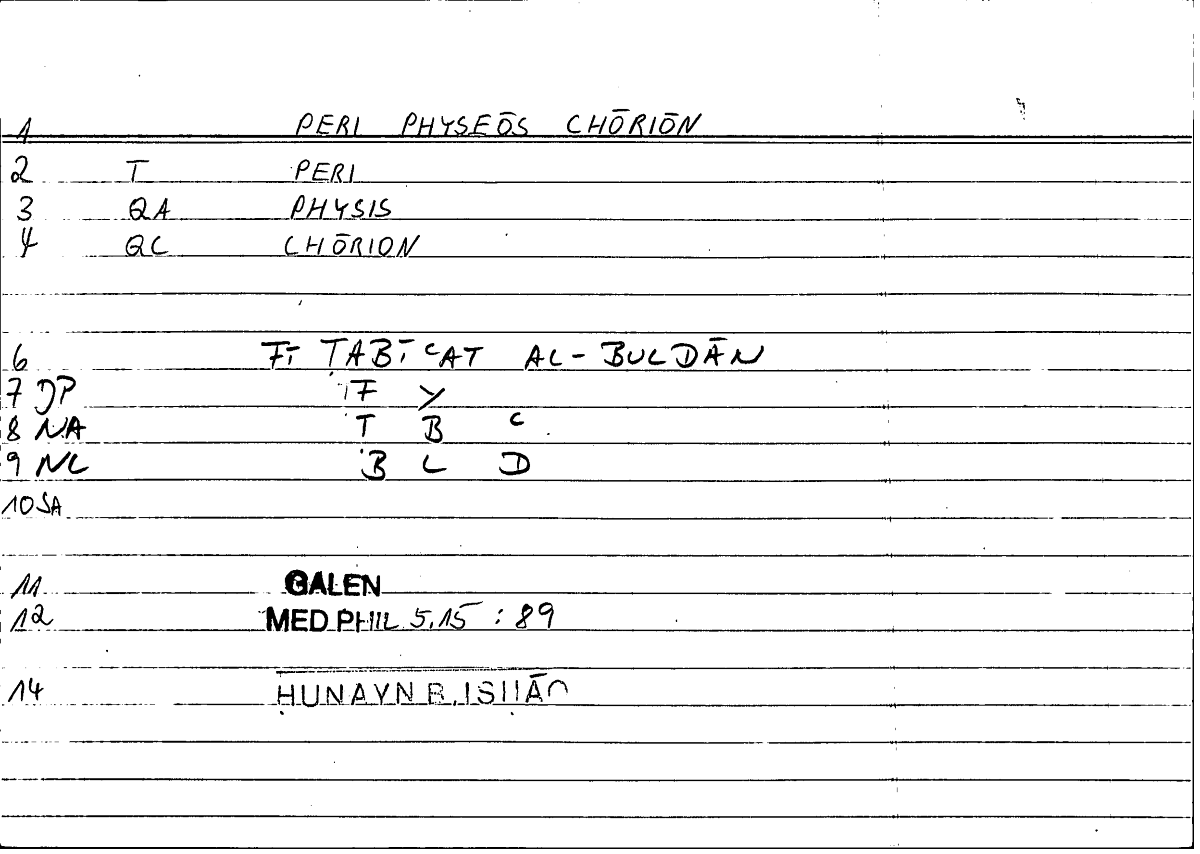 1 PERI PHYSEŌS CHŌRIŌN
2 T PERI
3 QA PHYSIS
4 QC CHŌRION
6 FĪ ṬABĪʿAT AL-BULDĀN
7 JP F Y
8 NA Ṭ B ʿ
9 NL B L D
10 SA
11 GALEN
12 MED PHIL 5.15 : 89
14 ḤUNAYN B. ISḤĀQ